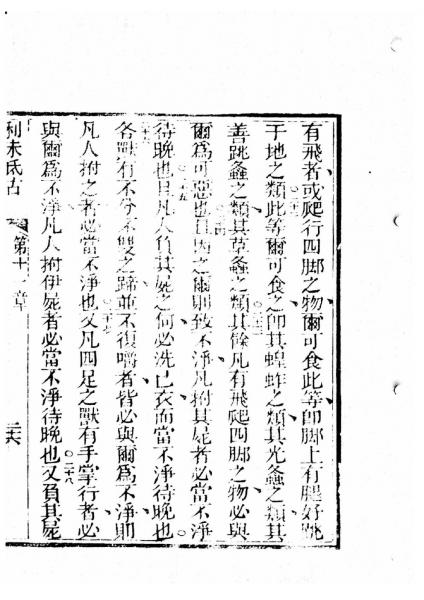 有飛者或爬行四脚之物爾可食此等卽脚上有腿好跳
于地之類此等爾可食之卽其蝗蚱之類其光螽之類其
善跳螽之類其草螽之類其餘凡有飛爬四脚之物必與
爾爲可惡也且因之爾則致不淨凡拊其屍者必當不淨
待晚也且凡人負其屍之何必洗己衣而當不淨待晚也
各獸有不分不雙之蹄並不復嚼者皆必與爾爲不淨則
凡人拊之者必當不淨也又凡四足之獸有手掌行者必
與爾爲不淨凡人拊伊屍者必當不淨待晚也又負其屍
利未氏古 第十一章